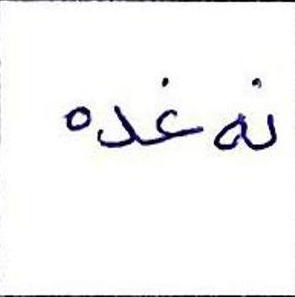 نه غده